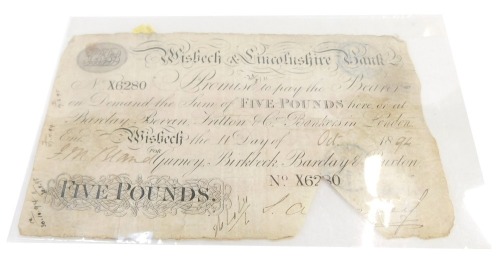 Wisbech & Lincolnshire Bank
No X6280 Promise to pay the Bearer
on Demand the Sum of FIVE POUNDS here or at
Barclay, Bevan, Tritton & Co Bankers in London
Ent Wisbech the 11 Day of Oct 1894
Gurney, Birkbeck, Barclay & Buxton
No X6280
FIVE POUNDS.